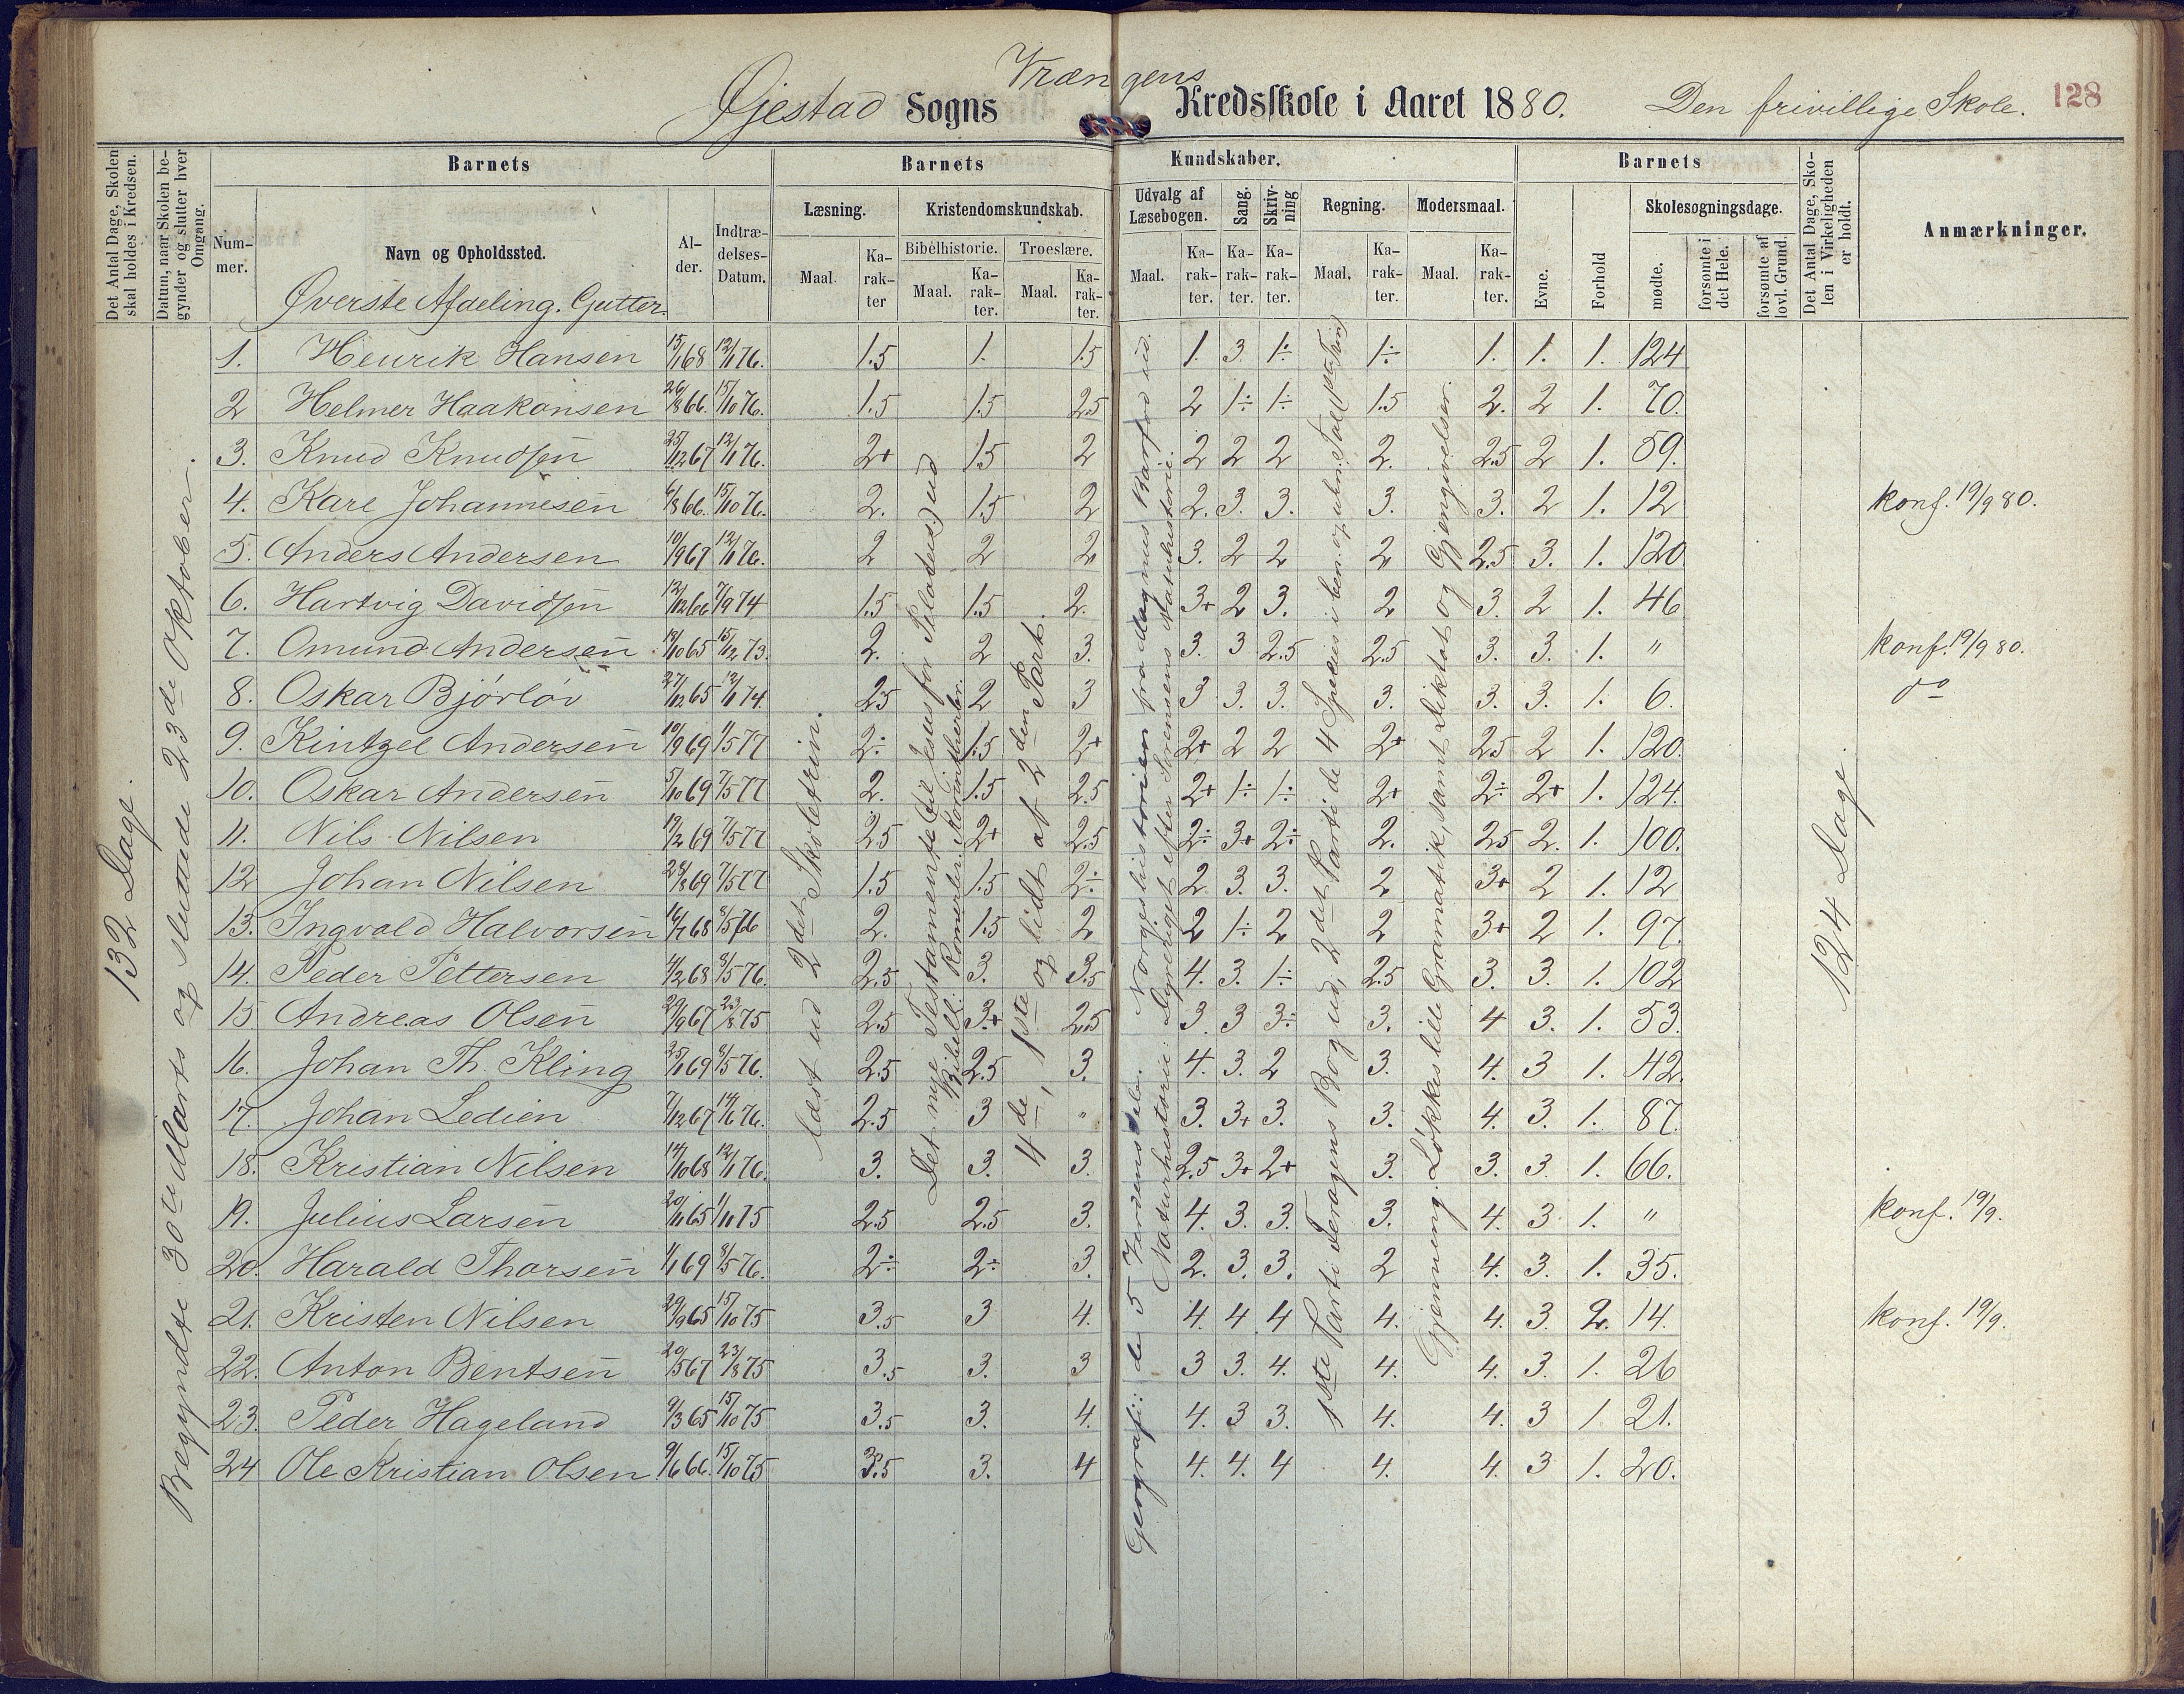 Øjestad Sogns Vrængens Kredsskole i Aaret 1880. Den frivillige Skole. 128
Det Antal Dage, Skolen skal holdes i Kredsen.
Datum, naar Skolen begynder og slutter hver Omgang.
Barnets
Barnets
Kundskaber.
Barnets
Det Antal Dage, Skolen i Virkeligheden er holdt.
Anmærkninger.
Nummer.
Navn og Opholdssted.
Alder.
Indtrædelses-Datum.
Læsning.
Kristendomskundskab.
Udvalg af Læsebogen.
Sang.
Skrivning
Regning.
Modersmaal.
Evne.
Forhold
Skolesøgningsdage.
Bibelhistorie.
Troeslære.
Maal. Karakter
Maal. Karakter.
Maal. Karakter.
Maal. Karakter.
Karakter.
Karakter.
Maal. Karakter.
Maal. Karakter.
mødte.
forsømte i det Hele.
forsømte af lovl. Grund.
Øverste Afdeling. Gutter.
132 Dage.
Begyndte 30te Marts og sluttede 23de Oktober.
læst ud 2det Skoletrin.
Det nye Testamente (til Jesus for Pilatus) ud
Bibell: Romerbr. Korinthierbr.
4de, 1ste og lidt af 2den Part.
Geografi: de 5 Verdensdele. Norgeshistorien fra Magnus Barfod ud.
Naturhistorie: Dyreriget efter Sørensens Naturhistorie.
1ste Parti Feragens Bog ud, 2det Parti de 4 Species i ben. og ubn. Tal
Gjenneming. Løkkes lille Gramatik, samt Diktat og Gjengivelser.
124 Dage.
1. Henrik Hansen 15/1 68 12/1 76. 1.5 1. 1.5 1. 3 1÷ 1÷ 1. 1. 1. 124
2 Helmer Haakonsen 26/8 66. 15/10 76. 1.5 1.5 2.5 2 1÷ 1÷ 1.5 2. 2 1. 70.
3. Knud Knudsen 25/12 67 12/1 76. 2+ 1.5 2 2 2 2 2. 2.5 2 1. 59.
4. Karl Johannesen 6/8 66. 15/10 76. 2. 1.5 2 2. 3. 3. 3. 3. 2 1. 12 konf. 19/9 80.
5. Anders Andersen 10/9 67 12/1 76. 2 2 2 3. 2 2 2 2.5 3. 1. 120
6. Hartvig Davidsen 12/12 66 7/9 74 1.5 1.5 2. 3+ 2 3. 2 3. 2 1. 46
7. Omund Andersen 18/10 65 15/12 73. 2. 2 3. 3. 3 2.5 2.5 3. 3. 1. " konf. 19/9 80.
8. Oskar Bjørløv 27/12 65 12/1 74. 2.5 2 3 3 3. 3. 3. 3. 3. 1. 6. do
9. Kintzel Andersen 10/9 69 1/5 77 2÷ 1.5 2+ 2+ 2 2 2+ 2.5 2 1. 120.
10. Oskar Andersen 5/10 69 7/5 77 2. 1.5 2.5 2+ 1÷ 1÷ 2+ 2÷ 2+ 1. 124.
11. Nils Nilsen 19/2 69 7/5 77 2.5 2+ 2.5 2÷ 3+ 2÷ 2. 2.5 2. 1. 100.
12 Johan Nilsen 28/8 69 7/5 77 1.5 1.5 2÷ 2. 3. 3. 2 3+ 2 1. 12
13. Ingvald Halvorsen 16/7 68 8/5 76 2. 1.5 2 2 1÷ 2 2 3+ 2 1. 97.
14. Peder Pettersen 4/2 68 8/5 76. 2.5 3. 3.5 4. 3. 1÷ 2.5 3. 3. 1. 102
15 Andreas Olsen 29/9 67 23/8 75 2.5 3+ 2.5 3. 3 3÷ 3. 4 3. 1. 53.
16. Johan Th. Kling 25/1 69 8/5 76. 2.5 2.5 3. 4. 3. 2 3. 4. 3 1. 42.
17. Johan Ledien 7/12 67 19/1 76. 2.5 3 " 3. 3+ 3. 3. 4. 3. 1. 87.
18. Kristian Nilsen 14/10 68 12/1 76. 3. 3. 3. 2.5 3+ 2+ 3. 3. 3 1. 66.
19. Julius Larsen 20/11 65 1/11 75 2.5 2.5 3. 4. 3. 3. 3. 4. 3 1. " konf. 19/9.
20. Harald Thorsen 1/1 69 8/5 76. 2÷ 2÷ 3. 2. 3. 3. 2 4. 3. 1. 35.
21. Kristen Nilsen 29/9 65 15/10 75 3.5 3 4. 4. 4 4 4. 4. 3. 2. 14. konf. 19/9.
22. Anton Bentsen 20/5 67 23/8 75 3.5 3. 3 3 3. 4. 4. 4. 3. 1. 26
23. Peder Hageland 9/3 65 15/10 75 3.5 3. 4. 4. 3 3. 4. 4. 3 1 21.
24 Ole Kristian Olsen 9/6 66. 15/10 75 3.5 3. 4 4. 4. 4 4. 4. 3 1. 20.